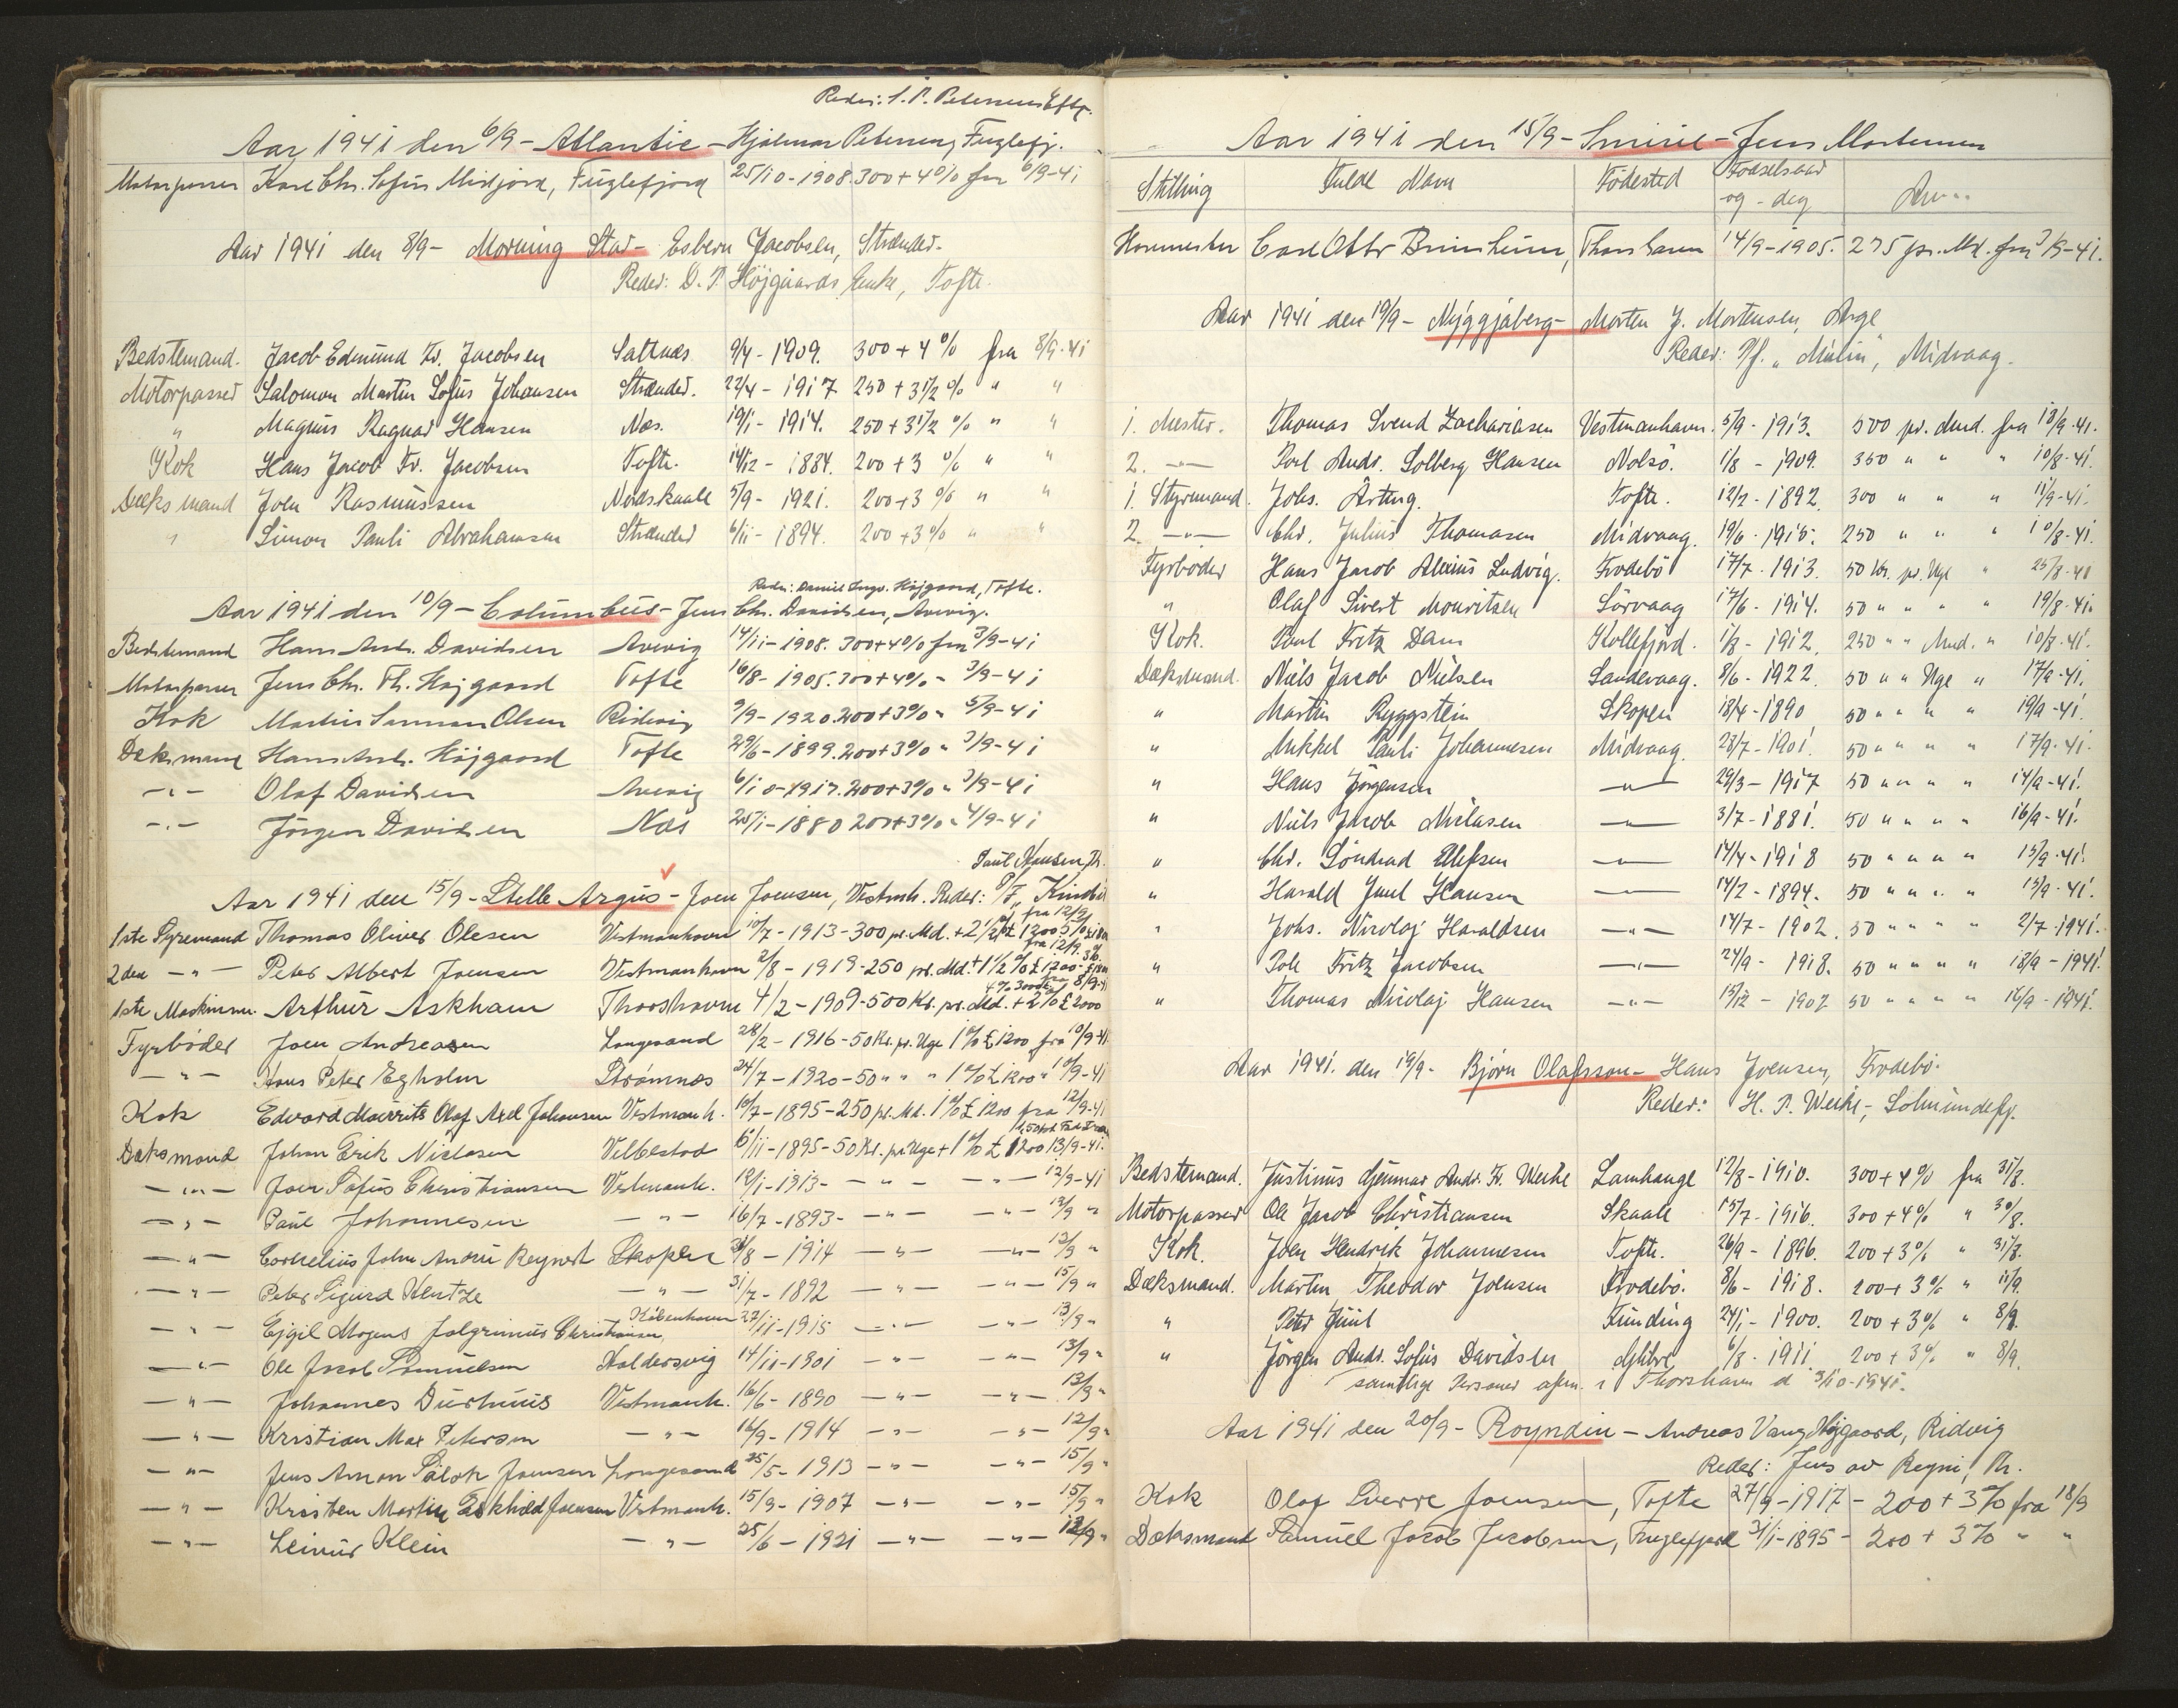 Reder: S. P. Petersens Eftf.
Aar 1941 den 6/9 - Atlantic - Hjalmar Petersen, Fuglefj.
Motorpasser Karl Chr. Sofus Midjord, Fuglefjord 25/10-1908. 300+4% fra 6/9-41
Aar 1941 den 8/9 - Morning Star - Esbern Jacobsen, Strænder.
Reder: D. P. Højgaards Enke, Tofte.
Bedstemand. Jacob Edmund Fr. Jacobsen Saltnæs 9/4 - 1909. 300 + 4% fra 8/9-41
Motorpasser Salomon Martin Sofus Johansen Strænder. 22/4 - 1917 250 + 3 1/2 % " "
" Magnus Ragnar Hansen Næs. 19/1 - 1914. 250 + 3 1/2 % " "
Kok Hans Jacob Fr. Jacobsen Tofte. 14/12 - 1884. 200 + 3 % " "
Dæksmand Joen Rasmussen Nordskaale 5/9 - 1921. 200 + 3 % " "
" Simon Pauli Abrahamsen Strænder 6/11 - 1894. 200 + 3% " "
Reder: Daniel Ingv. Højgaard, Tofte.
Aar 1941 den 10/9 - Columbus - Jens Chr. Davidsen, Arevig.
Bedstemand Hans Andr. Davidsen Arevig 14/11-1908. 300+4% fra 3/9-41
Motorpasser Jens Chr. Th. Højgaard Tofte 16/8-1905. 300+4% - 3/9-41
Kok Martin Olsen Ridevig 9/9-1920. 200+3% " 5/9-41
Dæksmand Hans Andr. Højgaard Tofte 29/6-1899. 200+3% " 3/9-41
- " - Olaf Davidsen Arevig 6/10-1917. 200+3% " 3/9-41
- " - Jörgen Davidsen Næs 25/1-1880 200+3% " 4/9-41
Paul Hansen, Th.
Aar 1941 den 15/9 - Stella Argus - Joen Joensen, Vestmh. Reder: P/F
1ste Styremand Thomas Oliver Olesen Vestmanhavn 10/7 - 1913 - 300 pr. Md. + 2 1/2 % £ 1200 fra 12/9
2den - " - Peter Albert Joensen Vestmanhavn 2/8 - 1919 - 250 pr. Md. + 1 1/2 % £ 1200 fra 12/9
1ste Maskinm. Arthur Askham Thorshavn 4/2 - 1909 - 500 Kr. pr. Md. + 2% £ 2000 8/9-41
Fyrböder Joen Andreasen Langesand 28/2 - 1916 - 50 Kr. pr. Uge 1% £ 1200 fra 10/9-41
- " - Hans Peter Egholm Strømnæs 24/7 - 1920 - 50 " " " 1% £ 1200 " 10/9-41
Kok Edvard Mourrits Olaf Axel Johansen Vestmanh. 10/7 - 1895 - 250 pr. Md. 1% £ 1200 fra 12/9-41
Dæksmand Johan Erik Niclasen Velbestad 6/11 - 1895 - 50 Kr. pr. Uge + 1% £ 1200 13/9-41.
- " - Joen Sofus Christiansen Vestmanh. 12/1-1913 - - " - - " - 12/9-41
- " - Paul Johannesen - " - 16/7-1893 - - " - - " - 13/9 "
- " - Cornelius John Andru Reynert Skopen 3/8 - 1914 - " - - " - 12/9 "
- " - Peter Sigurd Kentze - " - 31/7 - 1892 - " - - " - 15/9 "
- " - Ejgil Mogens Jalgrimus Christiansen København 27/11-1915 - " - - " - 13/9 "
- " - Ole Jacob Samuelsen Haldersvig 14/11-1901 - " - - " - 13/9 "
- " - Johannes Durhuus Vestmanh. 16/6 - 1890 - " - - " - 13/9 "
- " - Kristian Max Petersen - " - 16/9 - 1914 - " - - " - 12/9 "
- " - Jens Amon Joensen Langesand 25/5 - 1913 - " - - " - 15/9 "
- " - Kristen Martin Eskhild Joensen Vestmanh. 15/9 - 1907 - " - - " - 15/9 "
- " - Leinur Klein - " - 25/6 - 1921 - " - - " - 12/9 "
Aar 1941 den 15/9 - Smiril - Jens Mortensen
Stilling Fulde Navn Födested Födselsaar og - dag
Hovmester Carl Otto Brimheim, Thorshavn 14/9-1905. 275 pr. Md. fra 3/9-41.
Aar 1941 den 19/9 - Nýggjaberg - Morten J. Mortensen, Arge
Reder: P/f. "Mulin", Midvaag.
1. Mester. Thomas Svend Zachariasen Vestmanhavn. 5/9 - 1913. 500 pr. Mnd. fra 18/9-41.
2. - " - Poul Andr. Solberg Hansen Nolsö. 1/8 - 1909. 350 " " " 10/8-41.
1. Styrmand. Johs. Årting. Tofte. 12/2 - 1892. 300 " " " 11/9-41.
2. - " - Chr. Julius Thomasen Midvaag. 19/6 - 1915. 250 " " " 10/8-41.
Fyrböder Hans Jacob Alexius Ludvig. Frodebö 17/7 - 1913. 50 Kr. pr. Uge " 25/8-41
" Olaf Sivert Mouritsen Sörvaag 17/6 - 1914. 50 " " " " 19/8-41.
Kok. Poul Fritz Dam Kollefjord. 1/8 - 1912. 250 " " Mnd. " 10/8-41.
Dæksmand. Niels Jacob Nielsen Sandevaag. 8/6 - 1922. 50 " " Uge " 17/9-41.
" Martin Ryggstein Skopen 18/4-1890 50 " " " " 19/9-41.
" Mikkel Pauli Johannesen Midvaag. 23/7 - 1901. 50 " " " " 17/9-41.
" Hans Jörgensen - " - 29/3 - 1917 50 " " " " 14/9-41.
" Niels Jacob Niclasen - " - 3/7 - 1881. 50 " " " " 16/9-41.
" Chr. Ellefsen - " - 14/4-1918 50 " " " " 15/9-41.
" Harald Juul Hansen - " - 14/2 - 1894. 50 " " " " 15/9-41.
" Johs. Nicolaj Haraldsen - " - 14/7 - 1902. 50 " " " " 2/7-1941.
" Poli Fritz Jacobsen - " - 24/9 - 1918. 50 " " " " 18/9-1941.
" Thomas Nicolaj Hansen - " - 15/12 - 1902 50 " " " " 16/9-1941.
Aar 1941. den 19/9 - Björn Olafsson - Hans Joensen, Frodebö.
Reder: H. P. Weihe, Solmundefj.
Bedstemand. Justinus Hjenmar Andr. Fr. Weihe Lamhauge 12/8-1910. 300+4% fra 31/8.
Motorpasser Ole Jacob Christiansen Skaale 15/7-1916. 300+4% " 30/8.
Kok. Joen Hendrik Johannesen Tofte. 26/9 - 1896. 200+3% " 31/8.
Dæksmand. Martin Theodor Joensen Frodebö. 8/6 - 1918. 200+3% " 11/9.
" Peter Juul Funding 24/1 - 1900. 200+3% " 8/9.
" Jörgen Andr. Sofus Davidsen Glibre 6/8 - 1911. 200+3% " 8/9.
samtlige Personer afm. i Thorshavn d 3/10-1941.
Aar 1941 den 20/9 - Royndin - Andreas Vang Højgaard, Ridvig
Reder: Jens av Reyni, Th.
Kok Olaf Sverre Joensen, Tofte 27/9-1917 - 200+3% fra 18/9
Dæksmand Samuel Jacob Jacobsen, Fuglefjord 31/1-1895 - 200 + 3% " "